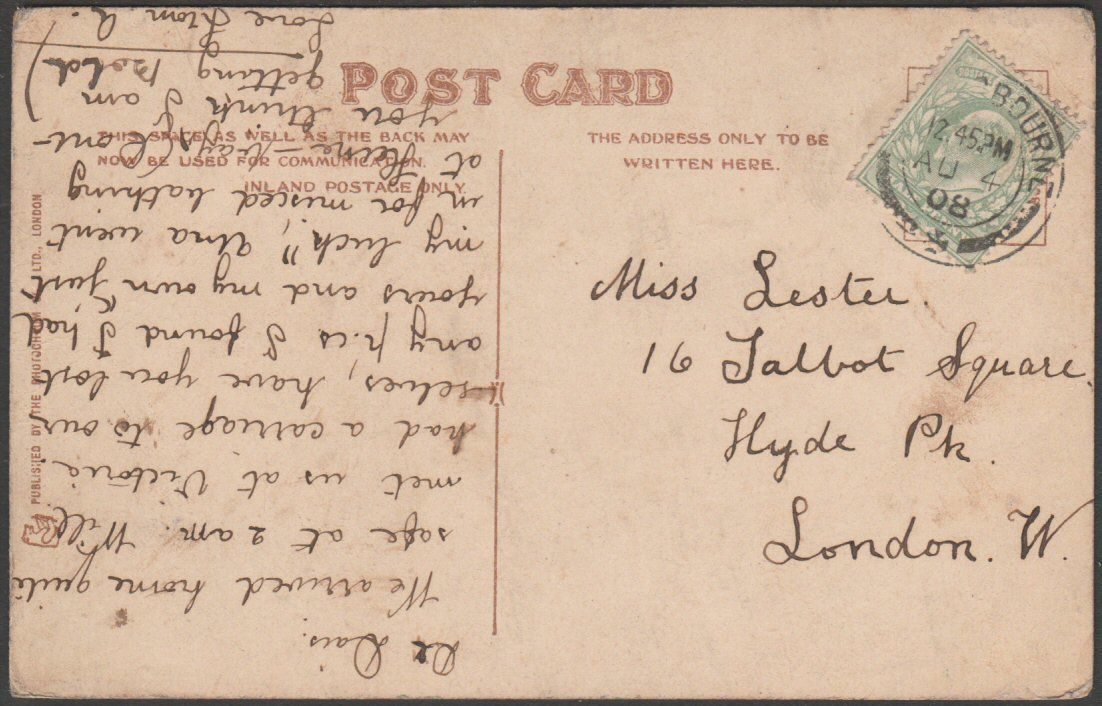 POST CARD
THIS SPACE, AS WELL AS THE BACK MAY
NOW BE USED FOR COMMUNICATION.
INLAND POSTAGE ONLY.
THE ADDRESS ONLY TO BE
WRITTEN HERE.
BOURNE
12.45PM
AU 4
08
Miss Lester.
16 Talbot Square,
Hyde Pk.
London. W.
PUBLISHED BY THE PHOTOCHROM CO. LTD., LONDON
De Dais.
We arrived home quite
safe at 2 am. Will
met us at Victoria
had a carriage to our
selves, have you lost
any p.cs I found I had
yours and my own "just
my luck", Una went
in for mixed bathing
at
you think I am
getting bold)
Love from A.